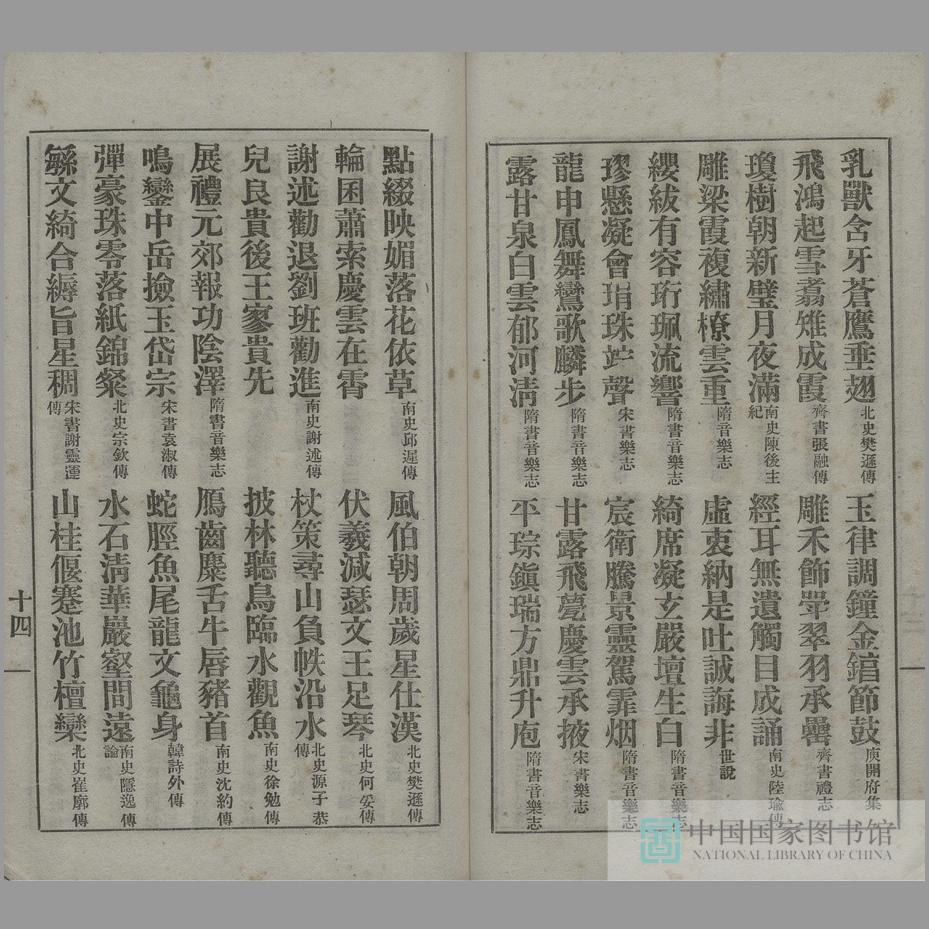 乳獸含牙蒼鷹垂翅 北史樊遜傳 玉律調鐘金錞節鼓 庾開府集
飛鴻起雪翥雉成霞 齊書張融傳 雕禾飾斝翠羽承罍 齊書禮志
瓊樹朝新璧月夜滿 南史陳後主紀 經耳無遺觸目成誦 南史陸瑜傳
雕梁霞複繡橑雲重 隋音樂志 虛衷納是吐誠誨非 世說
纓紱有容珩珮流響 隋書音樂志 綺席凝玄嚴壇生白 隋書音樂志
璆懸凝會琄珠竚聲 宋書樂志 宸衛騰景靈駕霏烟 隋書音樂志
龍申鳳舞鸞歌麟步 隋書音樂志 甘露飛甍慶雲承掖 宋書樂志
露甘泉白雲郁河清 隋書音樂志 平琮鎮瑞方鼎升庖 隋書音樂志
點綴映媚落花依草 南史邱遲傳 風伯朝周歲星仕漢 北史樊遜傳
輪囷蕭索慶雲在霄 伏羲減瑟文王足琴 北史何妥傳
謝述勸退劉班勸進 南史謝述傳 杖策尋山負帙沿水 北史源子恭傳
兒良貴後王寥貴先 披林聽鳥臨水觀魚 南史徐勉傳
展禮元郊報功陰澤 隋書音樂志 鴈齒麋舌牛唇豬首 南史沈約傳
鳴鑾中岳撿玉岱宗 宋書袁淑傳 蛇脛魚尾龍文龜身 韓詩外傳
彈豪珠零落紙錦粲 北史宗欽傳 水石清華巖壑問遠 南史隱逸傳論
緐文綺合縟旨星稠 宋書謝靈運傳 山桂偃蹇池竹檀欒 北史崔廓傳
十四
中国国家图书馆
NATIONAL LIBRARY OF CHINA